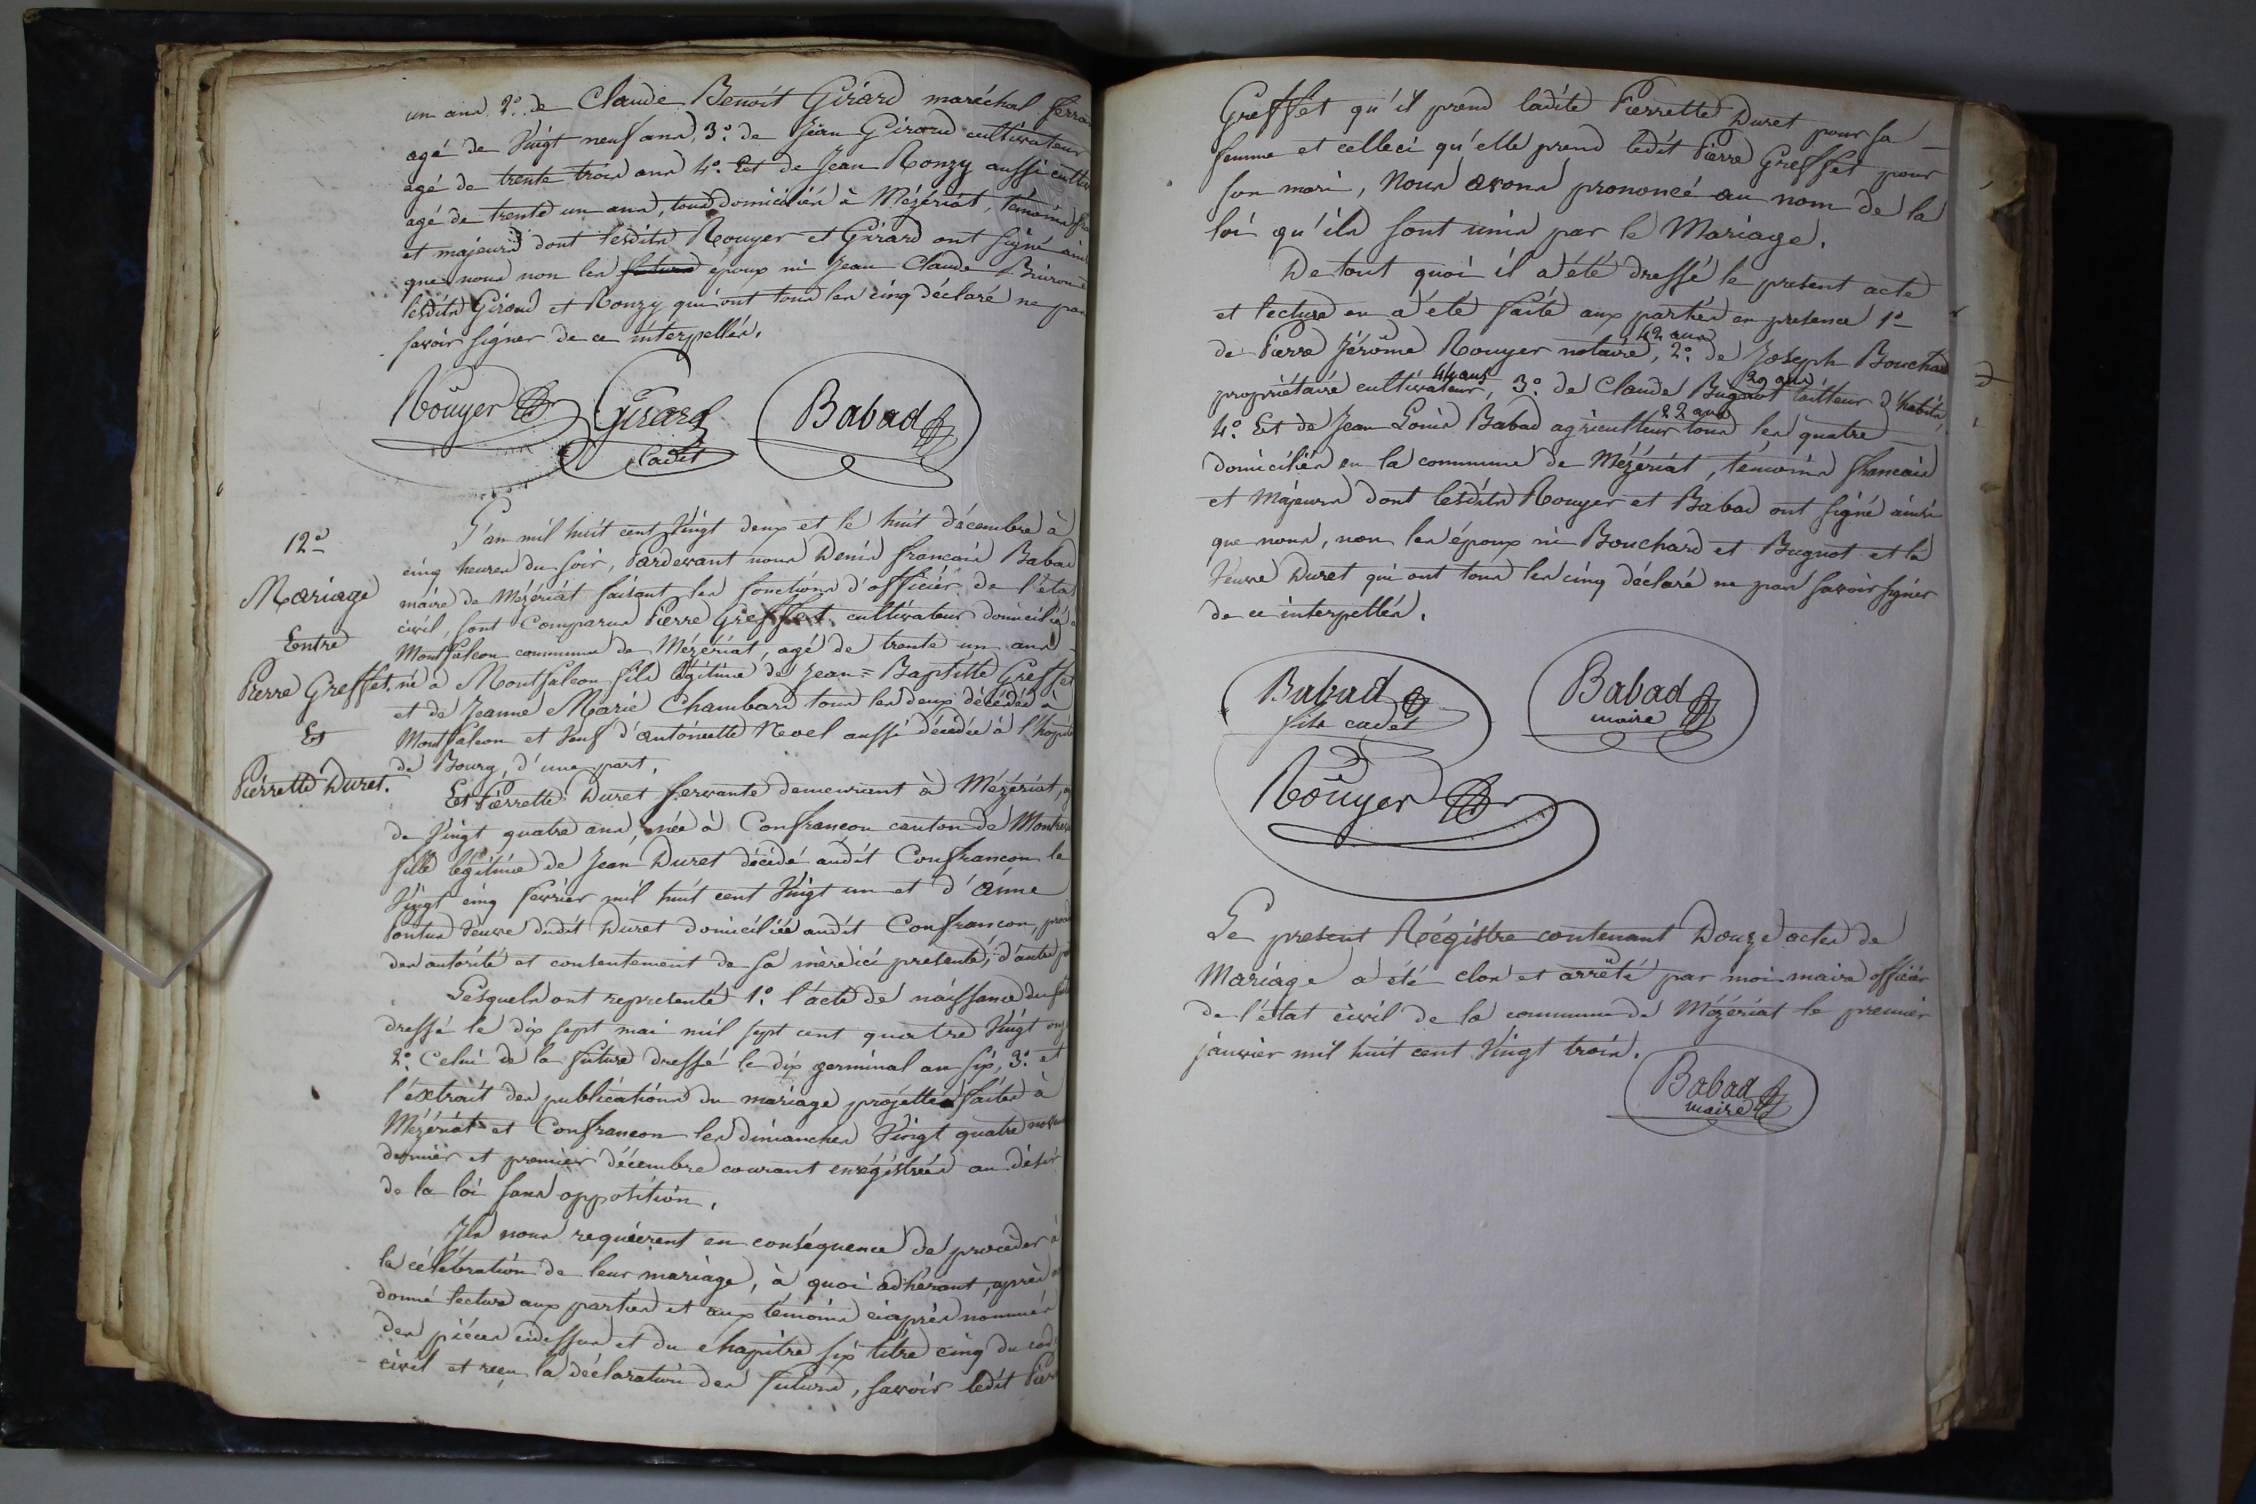 un ans 2.º de Claude Benoit Girard maréchal ferra
agé de Vingt neuf ans, 3.º de Jean Giroud cultivateur
agé de trente trois ans 4.º Et de Jean Ronzy aussi culti
agé de trente un ans, tous domiciliés à Mézériat, témoins fra
et majeurs dont lesdits Rouyer et Girard ont signé ain
que nous non les futurs époux ni Jean Claude
lesdits Giroud et Ronzy qui ont tous les cinq déclaré ne pas
savoir signer de ce interpellés.
Rouyer Girard Babad
Cadet
12.º
Mariage
Entre
Pierre Greffet
Et
Pierrette Duret.
L'an mil huit cent Vingt deux et le huit décembre à
cinq heures du soir, Pardevant nous Denis françois Babad
maire de Mézériat faisant les fonctions d'officier de l'état
civil, sont Comparus Pierre Greffet cultivateur domicilié à
Montfalcon commune de Mézériat, agé de trente un ans
né à Montfalcon fils légitime de Jean=Baptiste Greffet
et de Jeanne Marie Chambard tous les deux décédés à
Montfalcon et Veuf d'antoinette Revel aussi décédée à l'hopit
de Bourg, d'une part.
Et Pierrette Duret servante demeurant à Mézériat, ag
de Vingt quatre ans née à Confrançon canton de Montrev
fille légitime de Jean Duret décédé audit Confrançon le
Vingt cinq fevrier mil huit cent Vingt un et d'anne
Pontus Veuve dudit Duret domiciliée audit Confrançon, proc
des autorité et consentement de sa mère ici presente, d'autre p
Lesquels ont representé 1.º l'acte de naissance du fut
dressé le dix sept mai mil sept cent quatre Vingt onz
2.º Celui de la future dressé le dix germinal an six, 3.º et
l'extrait des publications du mariage projetté faites à
Mézériat et Confrançon les dimanches Vingt quatre novem
dernier et premier décembre courant enrégistrées au désir
de la loi sans opposition.
Ils nous requièrent en conséquence de proceder à
la célébration de leur mariage, à quoi adhérant, après a
donné lecture aux parties et aux témoins ciaprès nommés
des piéces cidessus et du chapitre six titre cinq du cod
civil et reçu la déclaration des futurs, savoir ledit Pierr
Greffet qu'il prend ladite Pierrette Duret pour sa
femme et celleci qu'elle prend ledit Pierre Greffet pour
son mari, Nous avons prononcé au nom de la
loi qu'ils sont unis par le Mariage.
De tout quoi il a été dressé le present acte
et lecture en a été faite aux parties en presence 1º
de Pierre Jérôme Rouyer notaire, 42 ans 2.º de Joseph Bouchard
propriétaire cultivateur, 44 ans 3.º de Claude Bugnot 29 ans tailleur d'habits,
4.º Et de Jean Louis Babad agriculteur 22 ans tous les quatre
domiciliés en la commune de Mézériat, témoins français
et Majeurs dont lesdits Rouyer et Babad ont signé ainsi
que nous, non les époux ni Bouchard et Bugnot et la
Veuve Duret qui ont tous les cinq déclaré ne pas savoir signer
de ce interpellés.
Babad
fils cadet
Babad
maire
Rouyer
Le present Régistre contenant Douze actes de
Mariage a été clos et arrêté par moi maire officier
de l'état civil de la commune de Mézériat le premier
janvier mil huit cent Vingt trois.
Babad
maire